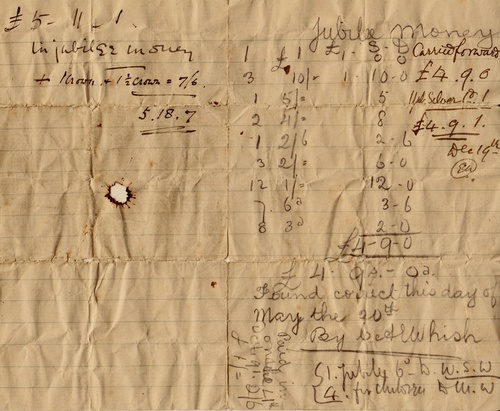 £5-11-1.
in jubilee money
+ 1 crown + 1 ½ crown = 7/6.
5.18.7
Jubilee Money
£ S D
1 £1 1-0 0
3 10/= 1-10-0
1 5/= 5
2 4/= 8
1 2/6 2-6
3 2/= 6-0
12 1/= 12-0
7. 6d 3-6
8 3d 2-0
£4-9-0
Carried forward
£4.9.0
1
£4.9.1.
Dec 19th
£4-9s.-0d.
Found correct this day of
May the 20th
By
1. jubilee 6d D. W.S.W
4. for children D.M.W